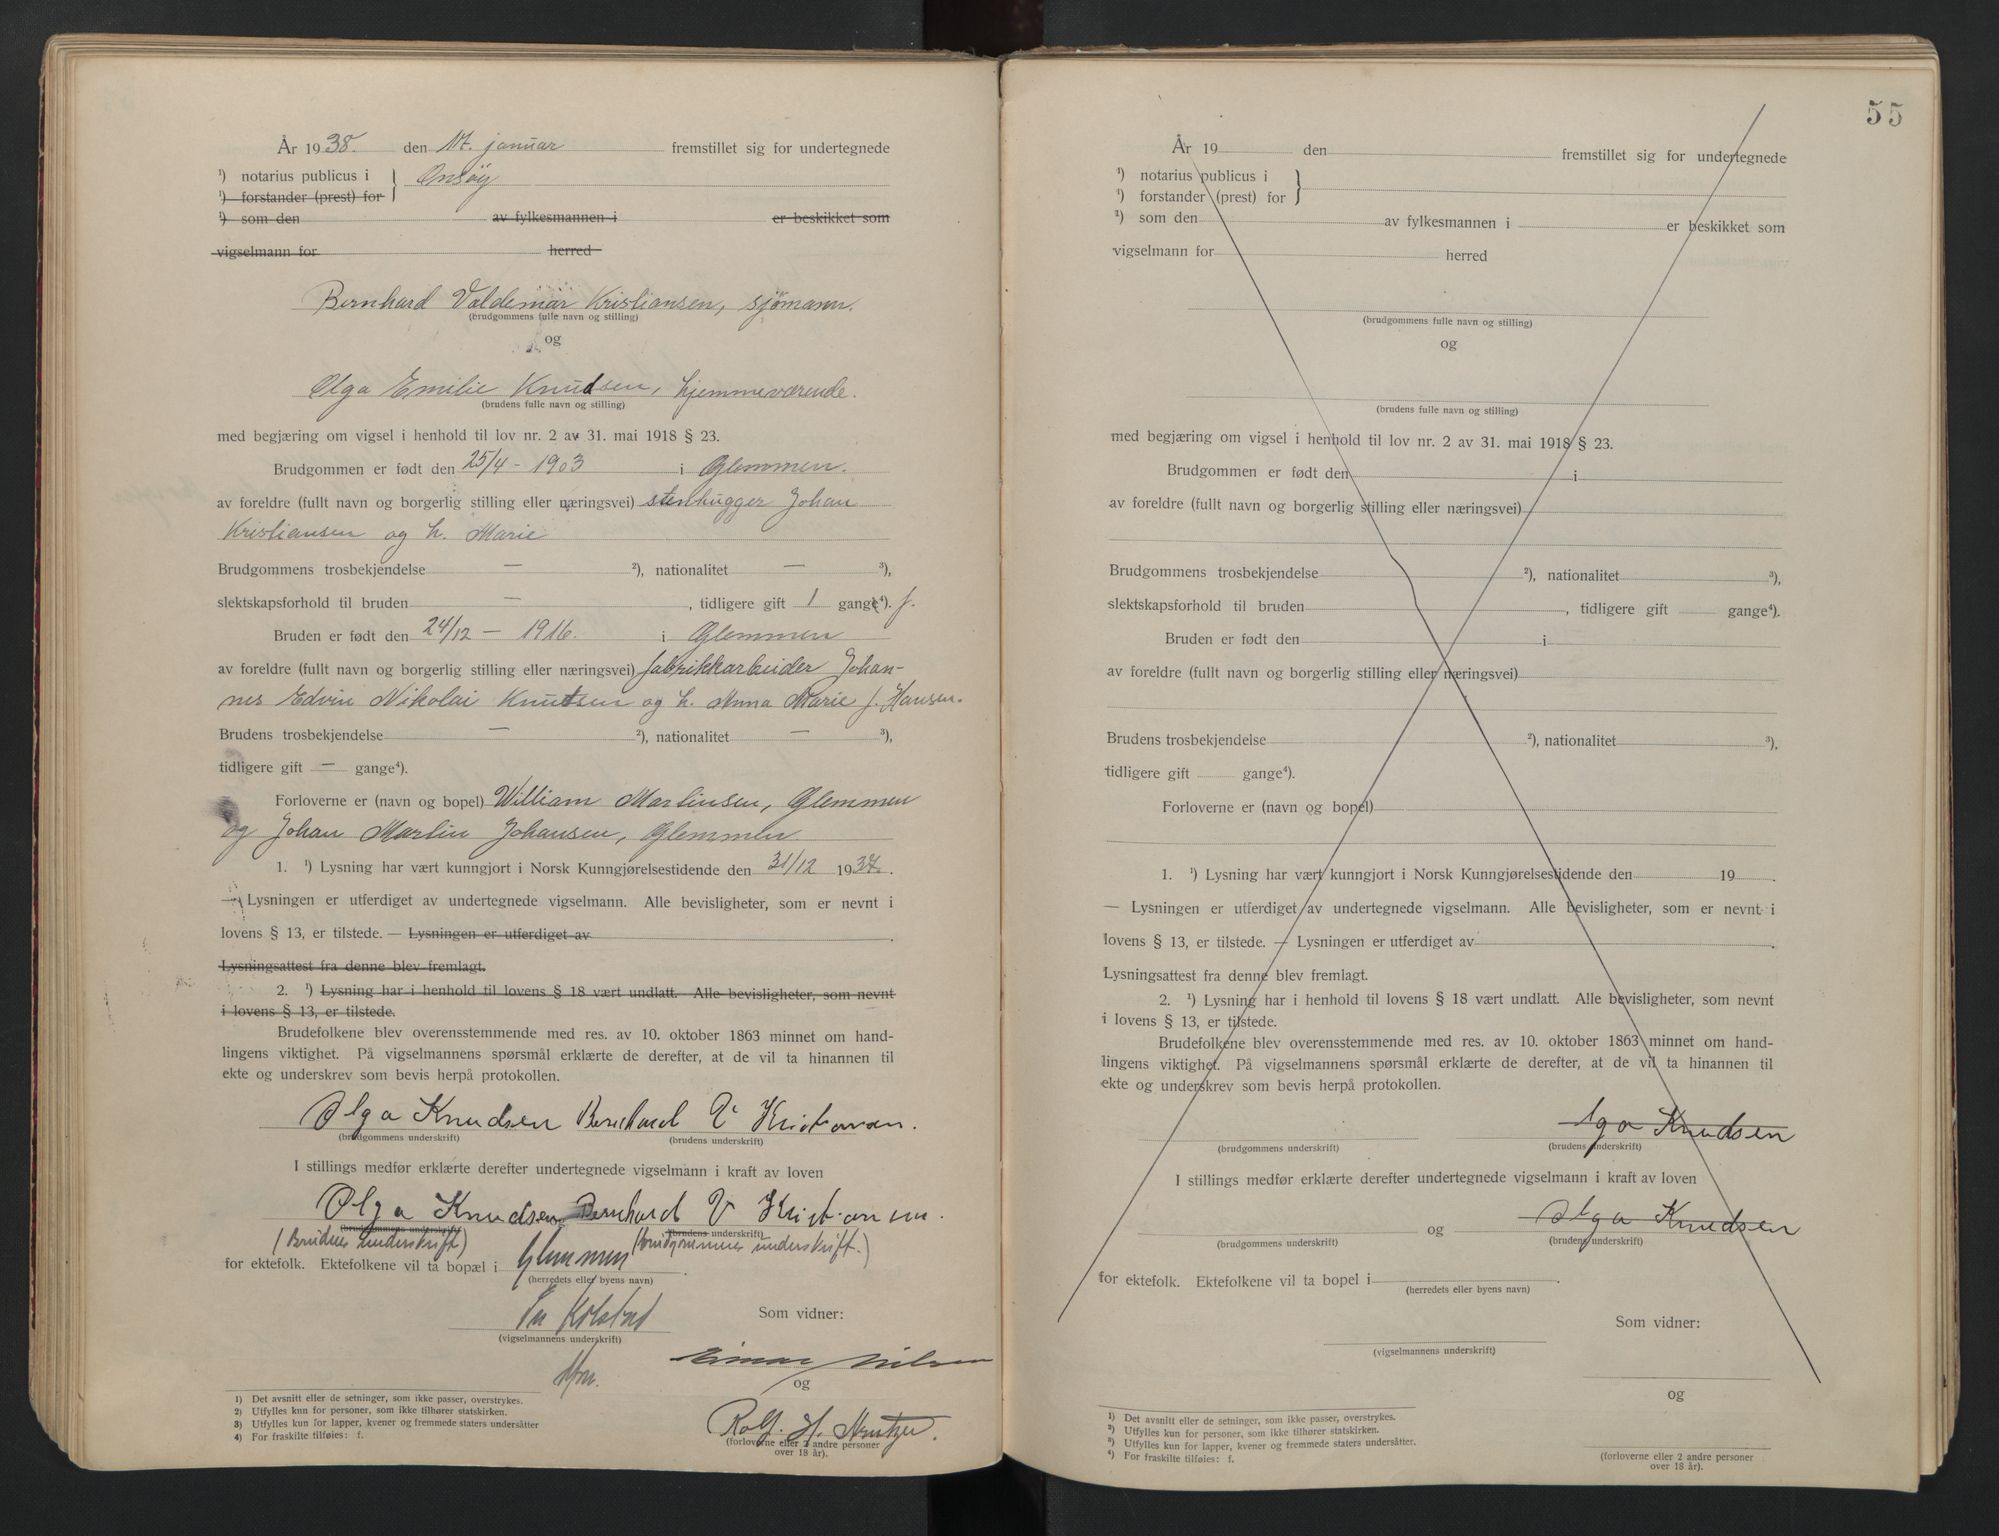 År 1938. den 17. januar fremstillet sig for undertegnede
¹) notarius publicus i } Onsøy
¹) forstander (prest) for
¹) som den av fylkesmannen i er beskikket som
vigselmann for herred
Bernhard Valdemar Kristiansen, sjømann.
(brudgommens fulle navn og stilling)
og
Olga Emilie Knudsen, hjemmeværende.
(brudens fulle navn og stilling)
med begjæring om vigsel i henhold til lov nr. 2 av 31. mai 1918 § 23.
Brudgommen er født den 25/4 - 1903 i Glemmen.
av foreldre (fullt navn og borgerlig stilling eller næringsvei) stenhugger Johan
Kristiansen og h. Marie
Brudgommens trosbekjendelse — ²), nationalitet — ³),
slektskapsforhold til bruden — , tidligere gift 1 gange⁴). f.
Bruden er født den 24/12 - 1916. i Glemmen
av foreldre (fullt navn og borgerlig stilling eller næringsvei) fabrikkarbeider Johan-
nes Edvin Nikolai Knutsen og h. Anna Marie f. Hansen.
Brudens trosbekjendelse — ²), nationalitet — ³),
tidligere gift — gange⁴).
Forloverne er (navn og bopel) William Martinsen, Glemmen
og Johan Martin Johansen, Glemmen
1. ¹) Lysning har vært kunngjort i Norsk Kunngjørelsestidende den 31/12 1937.
— Lysningen er utferdiget av undertegnede vigselmann. Alle bevisligheter, som er nevnt i
lovens § 13, er tilstede. — Lysningen er utferdiget av .
Lysningsattest fra denne blev fremlagt.
2. ¹) Lysning har i henhold til lovens § 18 vært undlatt. Alle bevisligheter, som nevnt
i lovens § 13, er tilstede.
Brudefolkene blev overensstemmende med res. av 10. oktober 1863 minnet om hand-
lingens viktighet. På vigselmannens spørsmål erklærte de derefter, at de vil ta hinannen til
ekte og underskrev som bevis herpå protokollen.
Olga Knudsen Bernhard V Kristiansen.
(brudgommens underskrift) (brudens underskrift)
I stillings medfør erklærte derefter undertegnede vigselmann i kraft av loven
Olga Knudsen Bernhard V Kristiansen.
(brudgommens underskrift) (brudens underskrift)
(Brudens underskrift) (brudgommens underskrift.)
for ektefolk. Ektefolkene vil ta bopæl i Glemmen .
(herredets eller byens navn)
Kolstad Som vidner:
(vigselmannens underskrift)
Einar Nilsen
og
Rolf. H.
(forloverne eller 2 andre personer
over 18 år).
1) Det avsnitt eller de setninger, som ikke passer, overstrykes.
2) Utfylles kun for personer, som ikke tilhører statskirken.
3) Utfylles kun for lapper, kvener og fremmede staters undersåtter
4) For fraskilte tilføies: f.
55
År 19 den fremstillet sig for undertegnede
¹) notarius publicus i }
¹) forstander (prest) for
¹) som den av fylkesmannen i er beskikket som
vigselmann for herred
(brudgommens fulle navn og stilling)
og
(brudens fulle navn og stilling)
med begjæring om vigsel i henhold til lov nr. 2 av 31. mai 1918 § 23.
Brudgommen er født den i
av foreldre (fullt navn og borgerlig stilling eller næringsvei)
Brudgommens trosbekjendelse ²), nationalitet ³),
slektskapsforhold til bruden , tidligere gift gange⁴).
Bruden er født den i
av foreldre (fullt navn og borgerlig stilling eller næringsvei)
Brudens trosbekjendelse ²), nationalitet ³),
tidligere gift gange⁴).
Forloverne er (navn og bopel)
1. ¹) Lysning har vært kunngjort i Norsk Kunngjørelsestidende den 19 .
— Lysningen er utferdiget av undertegnede vigselmann. Alle bevisligheter, som er nevnt i
lovens § 13, er tilstede. — Lysningen er utferdiget av .
Lysningsattest fra denne blev fremlagt.
2. ¹) Lysning har i henhold til lovens § 18 vært undlatt. Alle bevisligheter, som nevnt
i lovens § 13, er tilstede.
Brudefolkene blev overensstemmende med res. av 10. oktober 1863 minnet om hand-
lingens viktighet. På vigselmannens spørsmål erklærte de derefter, at de vil ta hinannen til
ekte og underskrev som bevis herpå protokollen.
lga Knudsen
(brudgommens underskrift) (brudens underskrift)
I stillings medfør erklærte derefter undertegnede vigselmann i kraft av loven
og Olga Knudsen
(brudgommens underskrift) (brudens underskrift)
for ektefolk. Ektefolkene vil ta bopel i .
(herredets eller byens navn)
Som vidner:
(vigselmannens underskrift)
og
1) Det avsnitt eller de setninger, som ikke passer, overstrykes.
2) Utfylles kun for personer, som ikke tilhører statskirken.
3) Utfylles kun for lapper, kvener og fremmede staters undersåtter.
4) For fraskilte tilføies: f.
(forloverne eller 2 andre personer
over 18 år).